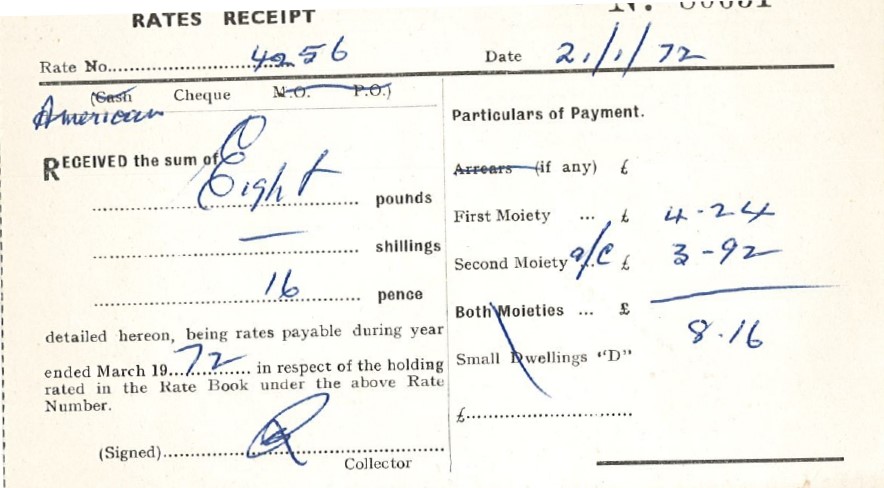 RATES RECEIPT
Rate No. 4256
Date 21/1/72
(Cash Cheque M.O. P.O.)
American
RECEIVED the sum of
Eight pounds
— shillings
16 pence
detailed hereon, being rates payable during year
ended March 19...72... in respect of the holding
rated in the Rate Book under the above Rate
Number.
(Signed)
Collector
Particulars of Payment.
Arrears (if any) £
First Moiety ... £ 4-24
Second Moiety a/c £ 3-92
Both Moieties ... £ 8.16
Small Dwellings "D"
£